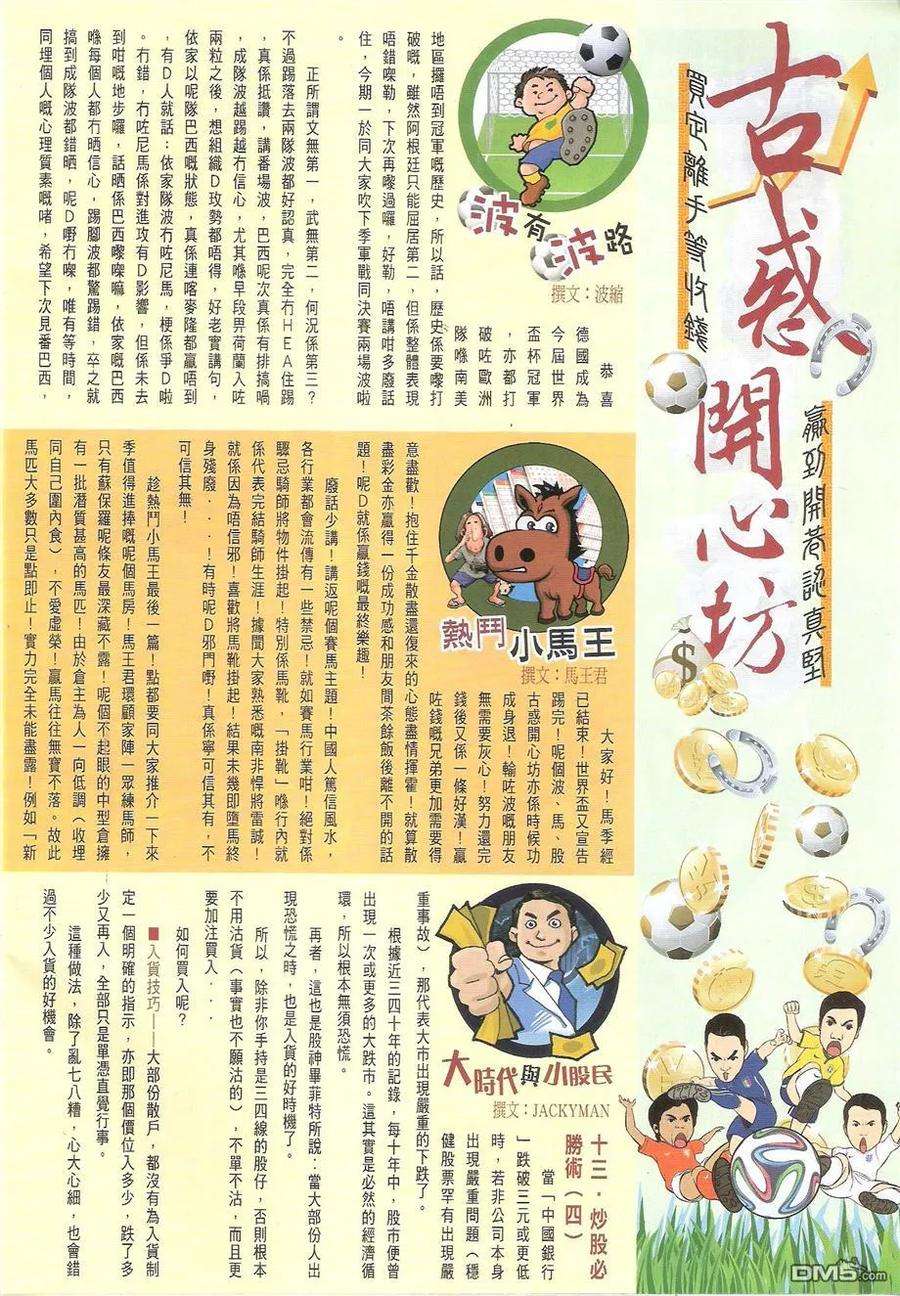 古惑開心坊
買定離手等收錢
贏到開巷認真堅
波有波路
撰文：波縮
恭喜
德國成為
今屆世界
盃杯冠軍
，亦都打
破咗歐洲
隊喺南美
地區攞唔到冠軍嘅歷史，所以話，歷史係要嚟打
破嘅，雖然阿根廷只能屈居第二，但係整體表現
唔錯㗎勒，下次再嚟過囉，好勒，唔講咁多廢話
住，今期一於同大家吹下季軍戰同決賽兩場波啦
。
正所謂文無第一，武無第二，何況係第三？
不過踢落去兩隊波都好認真，完全冇HEA住踢
，真係抵讚，講番場波，巴西呢次真係有排搞喎
，成隊波越踢越冇信心，尤其喺早段畀荷蘭入咗
兩粒之後，想組織D攻勢都唔得，好老實講句，
依家以呢隊巴西嘅狀態，真係連喀麥隆都贏唔到
，有D人就話：依家隊波冇咗尼馬，梗係爭D啦
。冇錯，冇咗尼馬係對進攻有D影響，但係未去
到咁嘅地步囉，話晒係巴西嚟㗎嘛，依家嘅巴西
喺每個人都冇晒信心，踢腳波都驚踢錯，卒之就
搞到成隊波都錯晒，呢D嘢冇㗎，唯有等時間，
同埋個人嘅心理質素嘅啫，希望下次見番巴西，
熱鬥小馬王
撰文：馬王君
大家好！馬季經
已結束！世界盃又宣告
踢完！呢個波、馬、股
古惑開心坊亦係時候功
成身退！輸咗波嘅朋友
無需要灰心！努力還完
錢後又係一條好漢！贏
咗錢嘅兄弟更加需要得
意盡歡！抱住千金散盡還復來的心態盡情揮霍！就算散
盡彩金亦贏得一份成功感和朋友間茶餘飯後離不開的話
題！呢D就係贏錢嘅最終樂趣！
廢話少講！講返呢個賽馬主題！中國人篤信風水，
各行業都會流傳有一些禁忌！就如賽馬行業咁！絕對係
驟忌騎師將物件掛起！特別係馬靴，「掛靴」喺行內就
係代表完結騎師生涯！據聞大家熟悉嘅南非悍將雷誠！
就係因為唔信邪！喜歡將馬靴掛起！結果未幾即墮馬終
身殘廢．．．！有時呢D邪門嘢！真係寧可信其有，不
可信其無！
趁熱鬥小馬王最後一篇！點都要同大家推介一下來
季值得進捧嘅呢個馬房！馬王君環顧家陣一眾練馬師，
只有蘇保羅呢條友最深藏不露！呢個不起眼的中型倉擁
有一批潛質甚高的馬匹！由於倉主為人一向低調（收埋
同自己圍內食），不愛虛榮！贏馬往往無寶不落。故此
馬匹大多數只是點即止！實力完全未能盡露！例如「新
大時代與小股民
撰文：JACKYMAN
十三．炒股必
勝術（四）
當「中國銀行
」跌破三元或更低
時，若非公司本身
出現嚴重問題（穩
健股票罕有出現嚴
重事故），那代表大市出現嚴重的下跌了。
根據近三四十年的記錄，每十年中，股市便曾
出現一次或更多的大跌市。這其實是必然的經濟循
環，所以根本無須恐慌。
再者，這也是股神畢菲特所說：當大部份人出
現恐慌之時，也是入貨的好時機了。
所以，除非你手持是三四線的股仔，否則根本
不用沽貨（事實也不願沽的），不單不沽，而且更
要加注買入．．．
如何買入呢？
■入貨技巧——大部份散戶，都沒有為入貨制
定一個明確的指示，亦即那個價位入多少，跌了多
少又再入，全部只是單憑直覺行事。
這種做法，除了亂七八糟，心大心細，也會錯
過不少入貨的好機會。
DM5.com